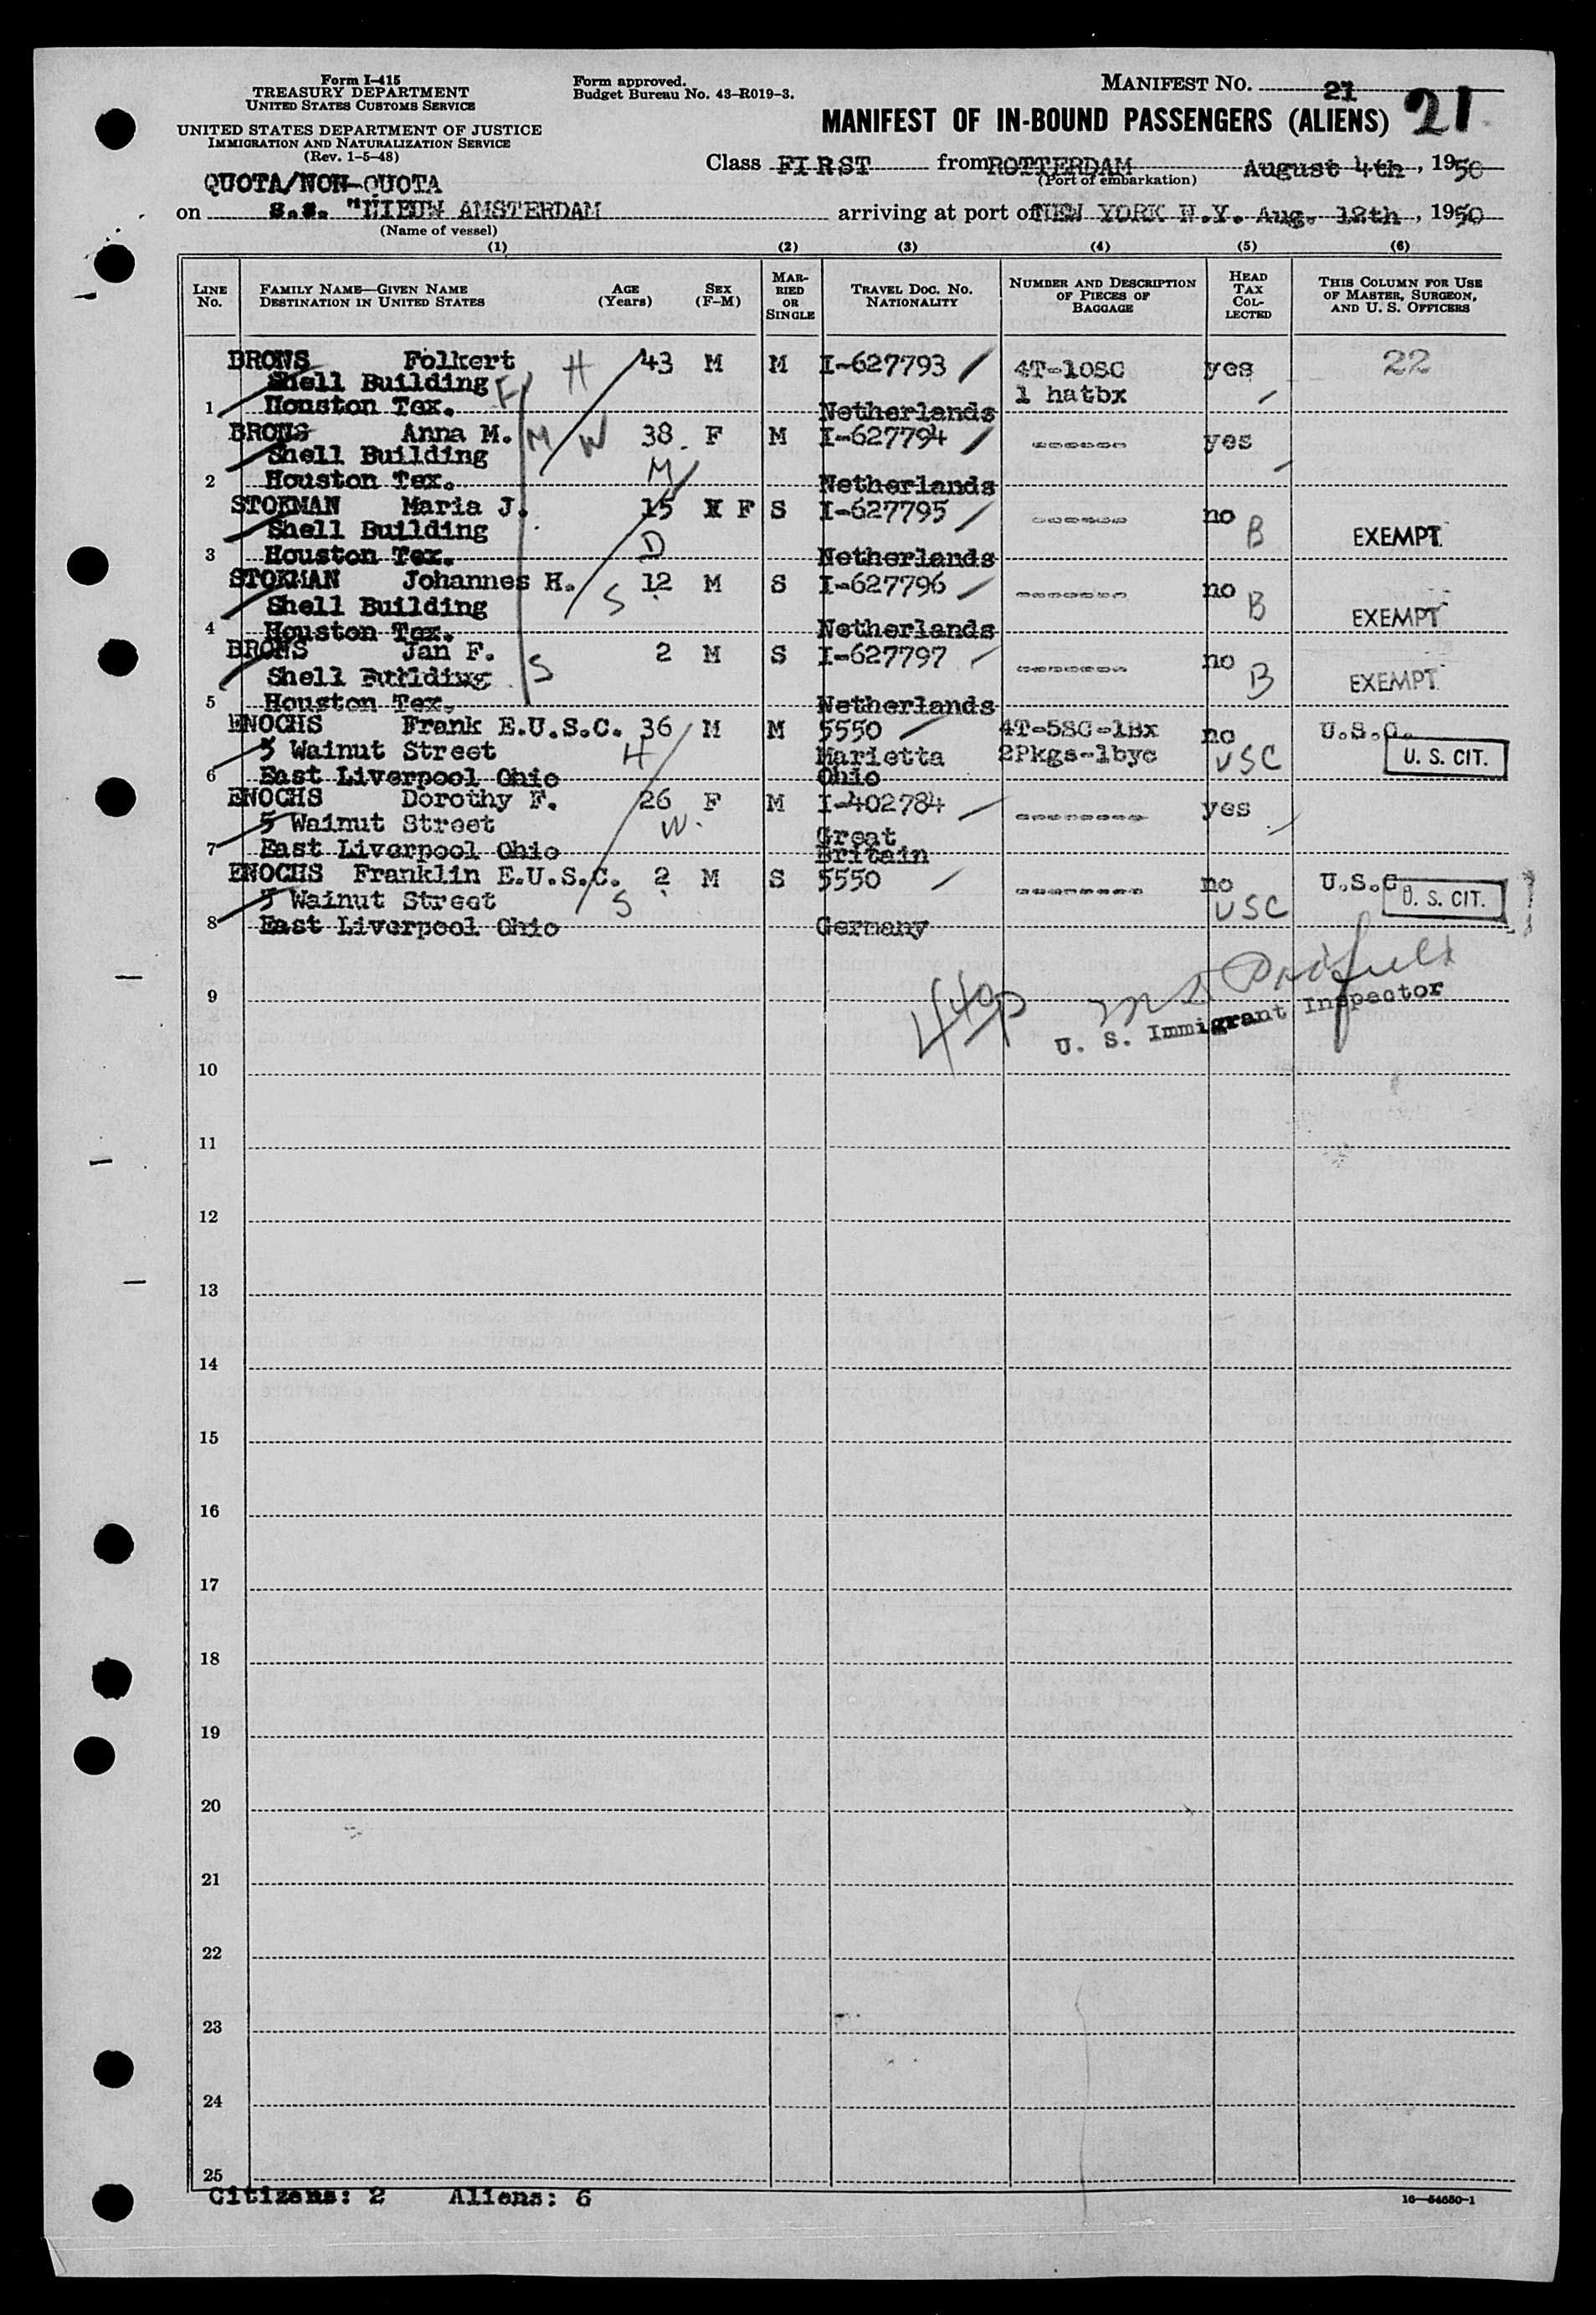 Form I-415
TREASURY DEPARTMENT
UNITED STATES CUSTOMS SERVICE
Form approved.
Budget Bureau No. 43-R019-3.
MANIFEST NO. 21
UNITED STATES DEPARTMENT OF JUSTICE
IMMIGRATION AND NATURALIZATION SERVICE
(Rev. 1-5-48)
MANIFEST OF IN-BOUND PASSENGERS (ALIENS) 21
Class FIRST from ROTTERDAM August 4th, 1950
(Port of embarkation)
QUOTA/NON-QUOTA
on s.s. "NIEUW AMSTERDAM arriving at port of NEW YORK N.Y. Aug. 12th, 1950
(Name of vessel)
(1) (2) (3) (4) (5) (6)
LINE NO. FAMILY NAME—GIVEN NAME DESTINATION IN UNITED STATES AGE (Years) SEX (F-M) MARRIED OR SINGLE TRAVEL DOC. NO. NATIONALITY NUMBER AND DESCRIPTION OF PIECES OF BAGGAGE HEAD TAX COLLECTED THIS COLUMN FOR USE OF MASTER, SURGEON, AND U. S. OFFICERS
BRONS Folkert H 43 M M I-627793 4T-10SC yes 22
Shell Building F 1 hatbx
1 Houston Tex. Netherlands
BRONS Anna M. M W 38 F M I-627794 yes
Shell Building
2 Houston Tex. M Netherlands
STOKMAN Maria J. 15 X F S I-627795 no B EXEMPT
Shell Building
3 Houston Tex. D Netherlands
STOKMAN Johannes H. 12 M S I-627796 no B EXEMPT
Shell Building S
4 Houston Tex. Netherlands
BRONS Jan F. 2 M S I-627797 no B EXEMPT
Shell Building S
5 Houston Tex. Netherlands
ENOCHS Frank E.U.S.C. 36 M M 5550 4T-5SC-1Bx no U.S.C.
5 Walnut Street H Marietta 2Pkgs-1byc USC U. S. CIT.
6 East Liverpool Ohio Ohio
ENOCHS Dorothy F. 26 F M I-402784 yes
5 Walnut Street W. Great
7 East Liverpool Ohio Britain
ENOCHS Franklin E.U.S.C. 2 M S 5550 no U.S.C.
5 Walnut Street S USC U. S. CIT.
8 East Liverpool Ohio Germany
9
U. S. Immigrant Inspector
10
11
12
13
14
15
16
17
18
19
20
21
22
23
24
25
Citizens: 2 Aliens: 6
16—54650-1